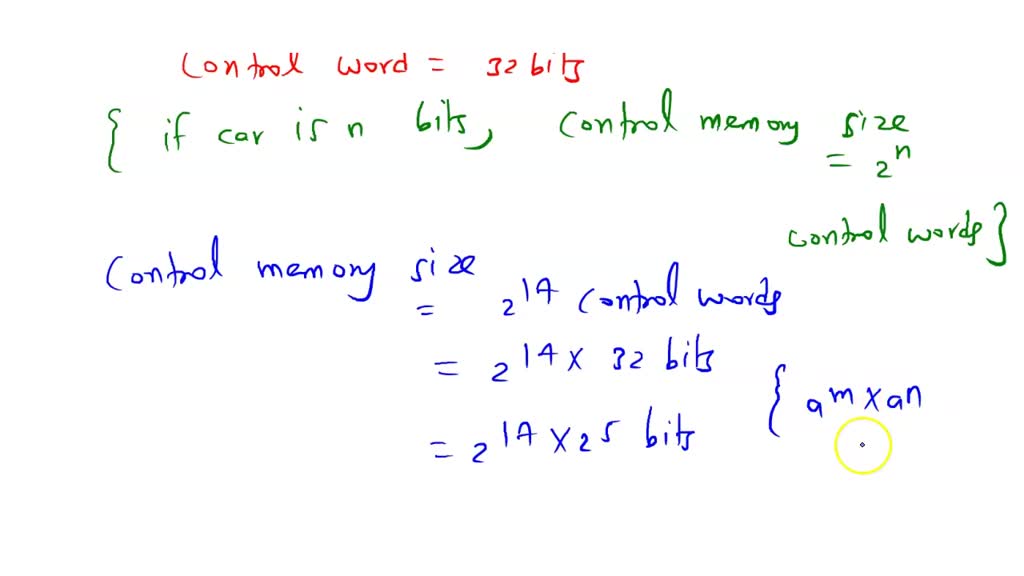 control word = 32 bits
{ if car is n bits, control memory size
= 2^n
control words }
Control memory size
= 2^14 control words
= 2^14 x 32 bits
= 2^14 x 2^5 bits
{ a^m x a^n